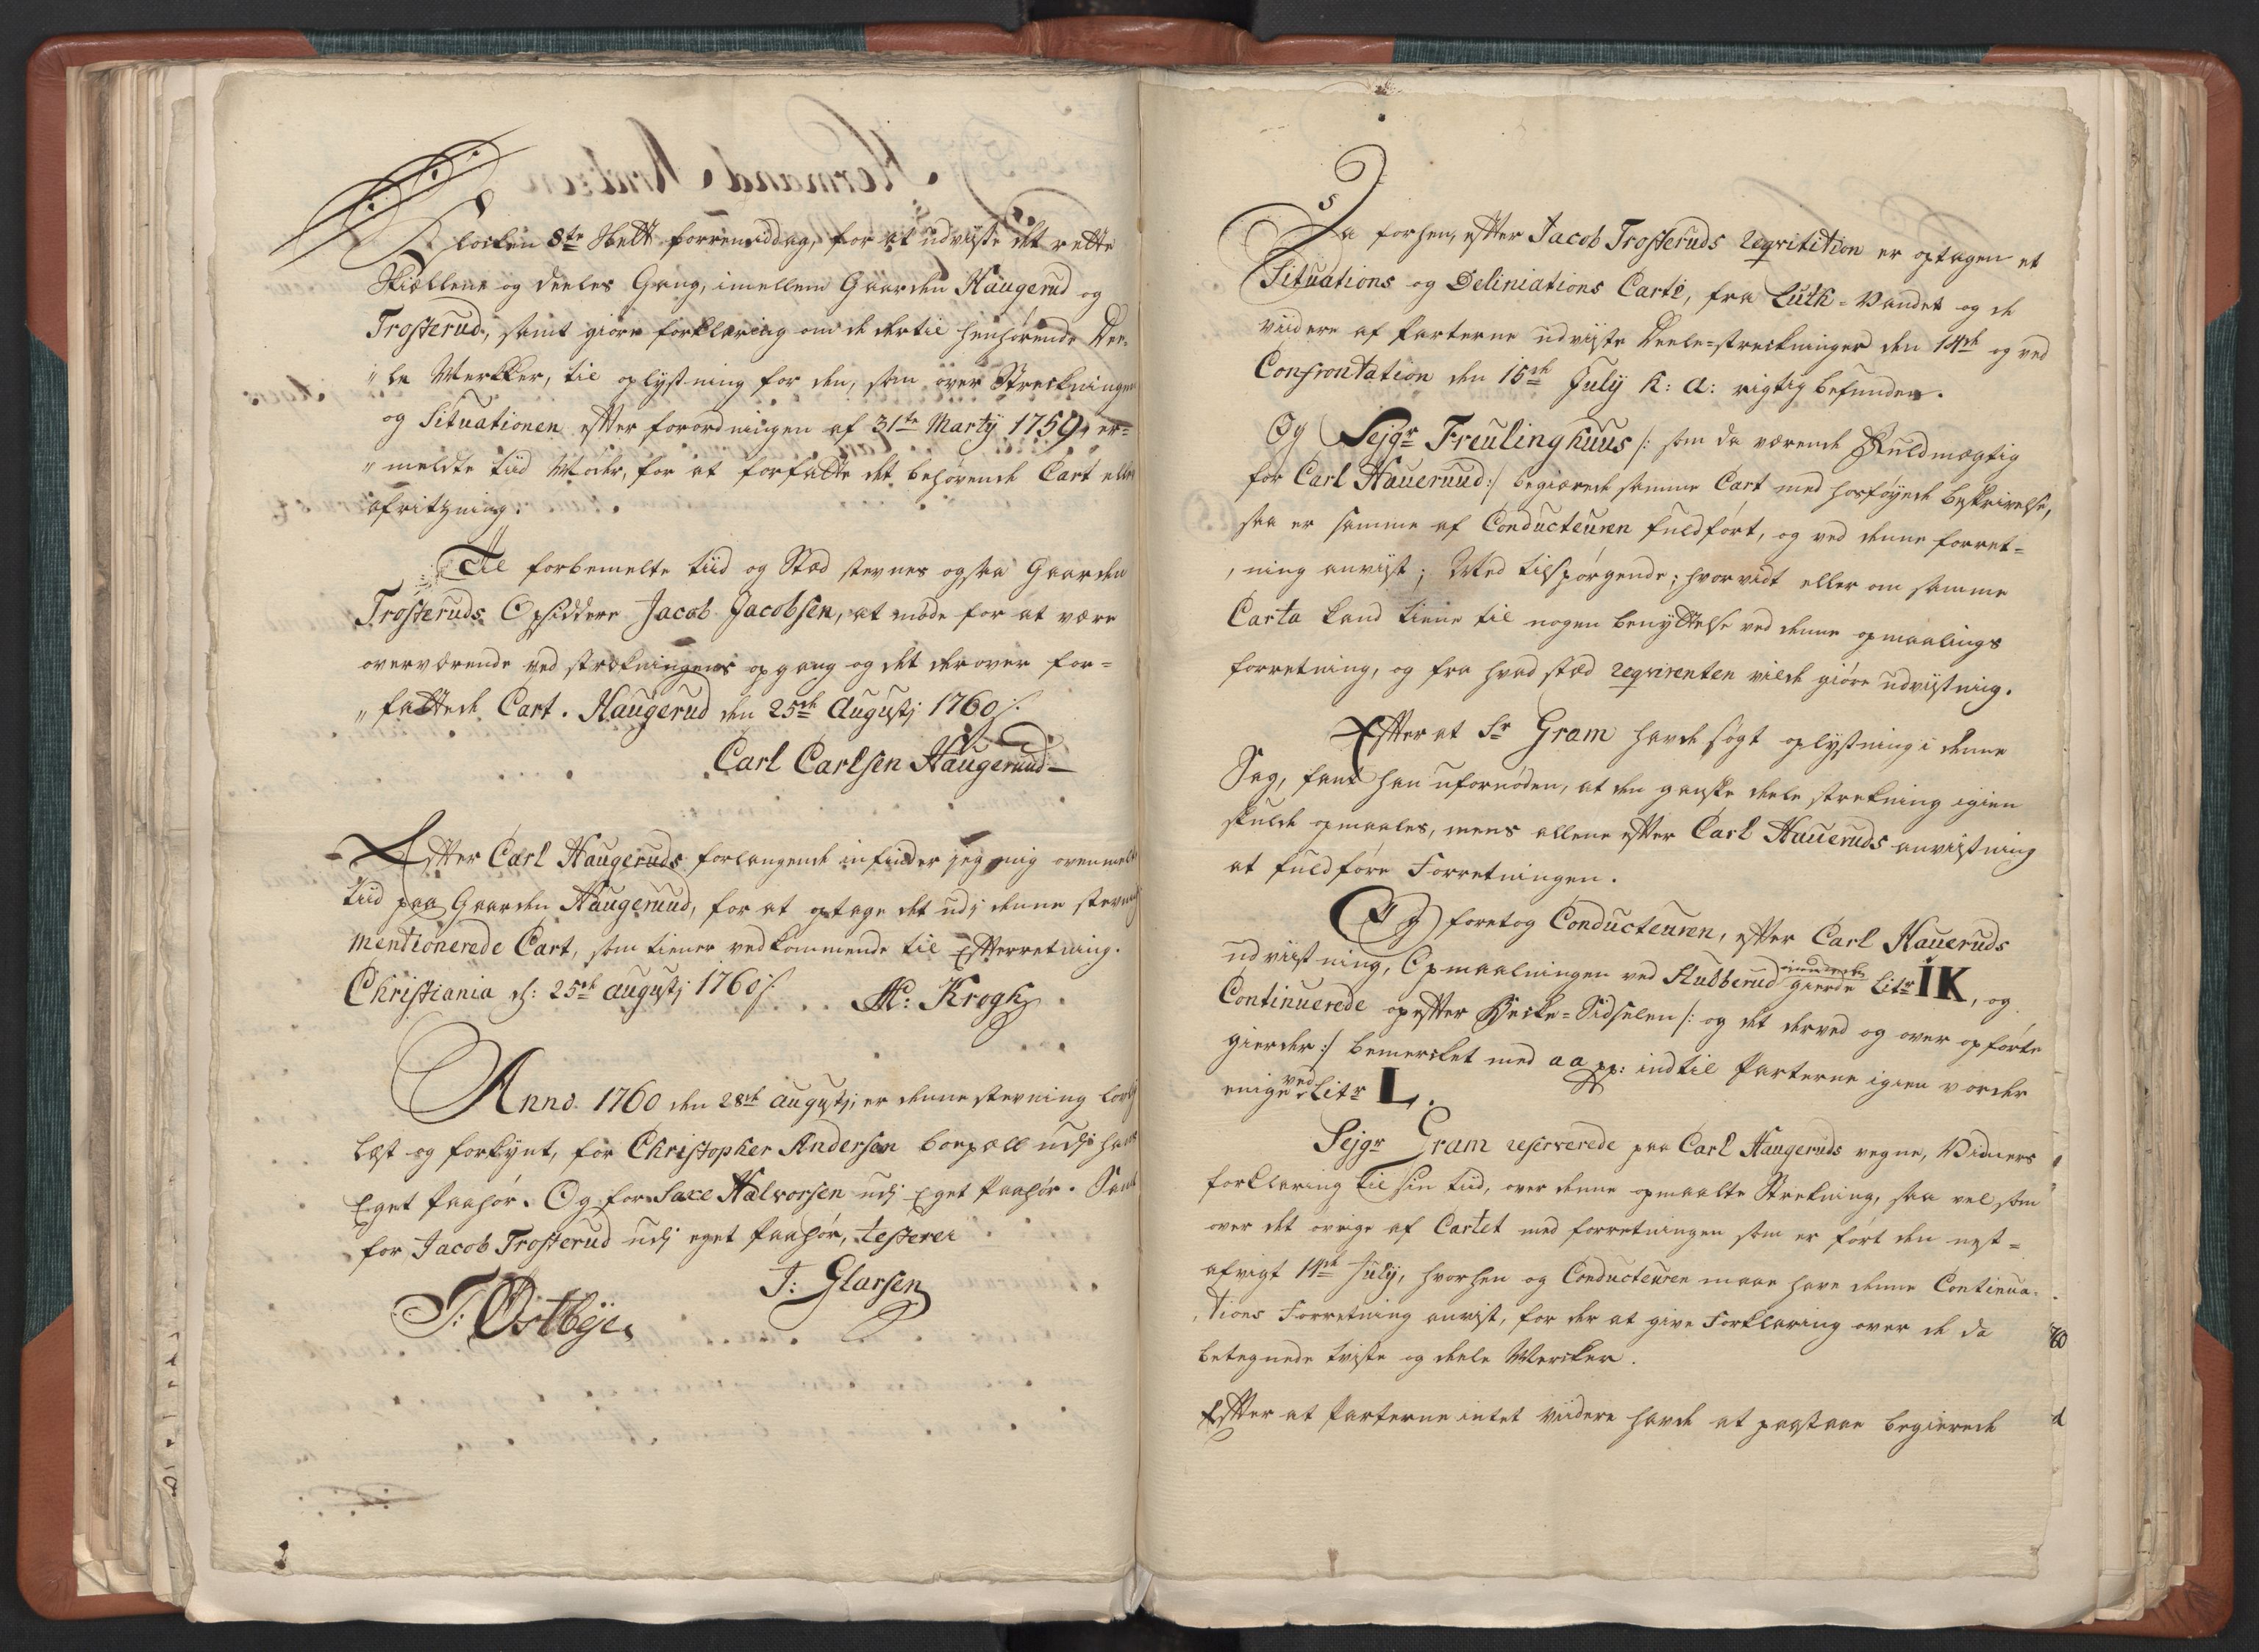 Klocken 8te Slett formiddag, for at udvisse det rette
Skiællene og deeles Gang, imellem Gaarden Haugerud og
Trosterud, samt giøre forklaring om de dertil henhørende Dee-
„le Merkker, til oplysning for den, som over Streckningen
og Situationen efter forordningen af 31te Martÿ 1759, er-
„meldte tiid Møder, for at forfatte det behørende Cart eller
afritzning.
Til forbemelte tiid og Stæd stevnes ogsaa Gaarden
Trosteruds Opsiddere Jacob Jacobsen, at møde for at være
overværende ved strækningens opgang og det derover for-
„fattede Cart. Haugerud den 25de Augustj 1760
Carl Carlsen Haugeruud
Efter Carl Haugeruds forlangende infinder jeg mig ovenmelte
tiid paa Gaarden Haugeruud, for at optage det udj denne stevning
mentionerede Cart, som tiener vedkommende til Efterretning.
Christiania d: 25de augustj 1760
Krogh
Anno 1760 den 28de augustj, er denne stevning lovlig
læst og forkynt, for Christopher Andersen boepæll udj hans
Eget Paahør. Og for Halvorsen udj Eget Paahør. Samt
for Jacob Trosterud udj eget Paahør, testerer
J: Glarsen
J: Østbÿe
Da forhen, efter Jacob Trosteruds reqvisition er optagen et
Situations og Deliniations Carte, fra Lutk-Vandet og de
viidere af Parterne udviiste Deele-streckninger den 14de og ved
Confrontation den 15de Julÿ h: a: rigtig befunden.
Og Sejgr Freulinghuus /: som da værende Fuldmægtig
for Carl Haueruud :/ begiærede samme Cart med hosføyede beskrivelse,
saa er samme af Conducteuren fuldført, og ved denne forret-
„ning anviist; Med tilspørgende; hvorvidt eller om samme
Carta kand tiene til nogen benyttelse ved denne opmaalings
forretning, og fra hvad stæd reqvirenten vilde giøre udviistning.
Efter at Sr Gram havde søgt oplysning i denne
Sag, fant han ufornøden, at den ganske deele strekning igien
skulde opmaales, mens allene efter Carl Haueruds anviistning
at fuldføre Forretningen.
Og foretog Conducteuren, efter Carl Haueruds
udviistning, Opmaalningen ved Stubberud gierde Litr IK, og
Continuerede op efter Becke-Sidselen /: og det derved og over opførte
gierder :/ bemercket med aa pp: indtil Parterne igien vorder
enige ved Litr L.
Sejgr Gram reserverede paa Carl Haugeruds vegne, Vidners
forklaring til sin tiid, over denne opmaalte Strekning, saa vel som
over det øvrige af Cartet med forretningen som er ført den nest-
afvigt 14de Julÿ, hvorhen og Conducteuren maae have denne Continua-
„tions Forretning anviist, for der at give Forklaring over de da
betegnede tviste og deele Mercker.
Efter at Parterne intet viidere havde at paastaae begierede